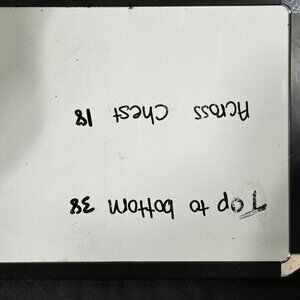 Top to bottom 38
Across Chest 18